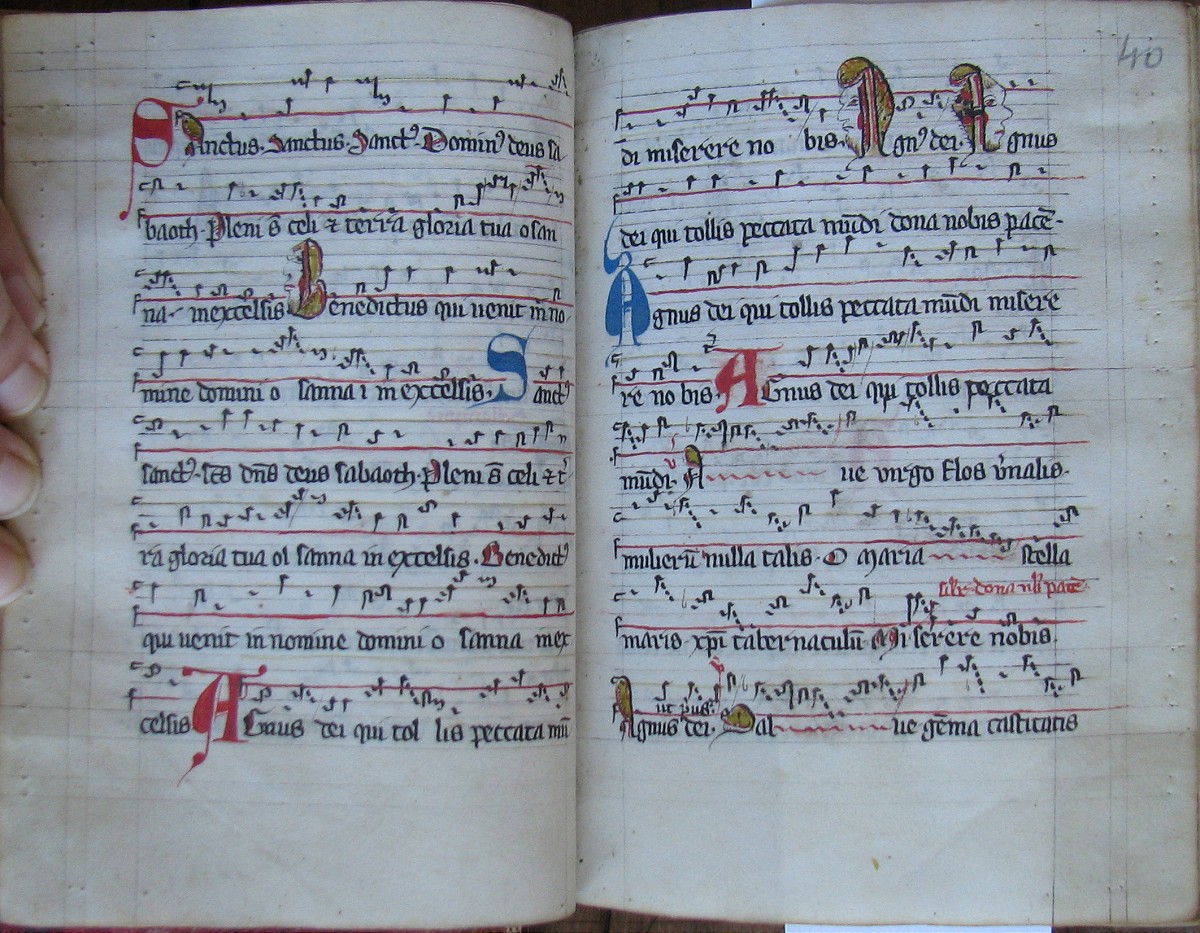 Sanctus. Sanctus. Sanctꝰ. Dominꝰ deus sa
baoth. Pleni st̄ celi ⁊ terra gloria tua osan
na. in excelsis Benedictus qui uenit in no
mine domini o sanna i in excelsis. Sanctꝰ
sanctꝰ. scs dn̄s deus sabaoth. Pleni st̄ celi ⁊ t
ra gloria tua osanna in excelsis. Benedictꝰ
qui uenit in nomine domini o sanna in ex
celsis Agnus dei qui tol lis peccata mū
40
di miserere no bis. Agnꝰ dei. Agnus
dei qui tollis peccata mūdi dona nobis pacē.
Agnus dei qui tollis peccata mūdi misere
re no bis Agnus dei qui tollis peccata
mūdi. A ue virgo flos v̾nalis.
mulierū nulla talis. O maria stella
silr dona nob pacē.
maris xp̄i tabernaculū. Miserere nobis.
ut pus.
Agnus dei. Sal ue gēma castitatis